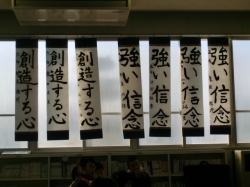 創造する心
創造する心
創造する心
強い信念
強い信念
強い信念
強い信念